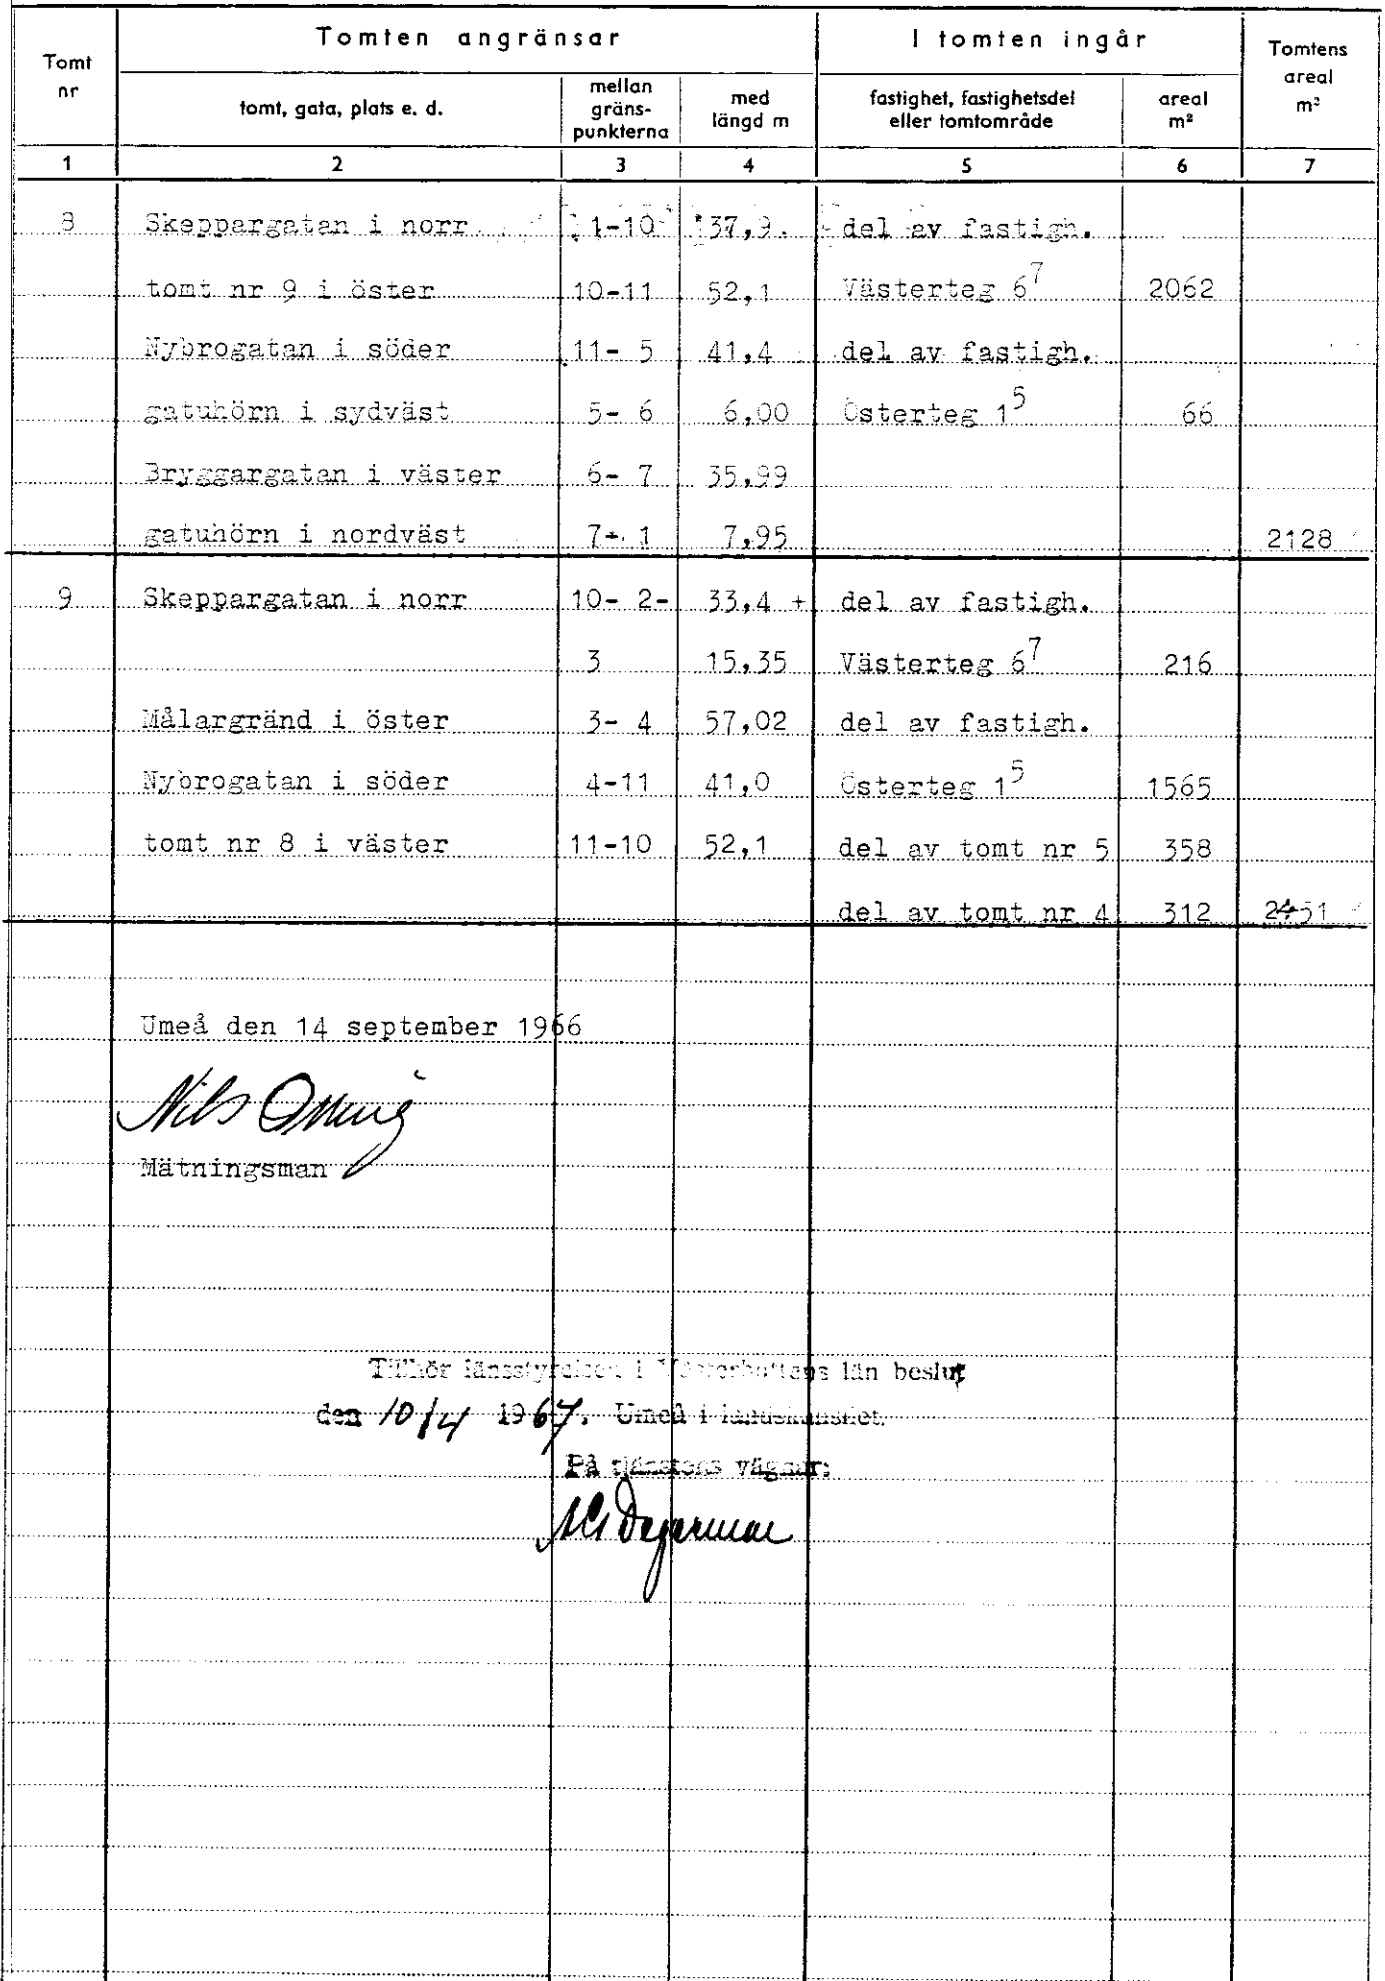 Tomt nr Tomten angränsar I tomten ingår Tomtens areal m²
tomt, gata, plats e. d. mellan gräns-punkterna med längd m fastighet, fastighetsdel eller tomtområde areal m²
1 2 3 4 5 6 7
8 Skeppargatan i norr 1-10 37,9 del av fastigh.
tomt nr 9 i öster 10-11 52,1 Västerteg 6⁷ 2062
Nybrogatan i söder 11- 5 41,4 del av fastigh.
gatuhörn i sydväst 5- 6 6,00 Österteg 1⁵ 66
Bryggargatan i väster 6- 7 35,99
gatuhörn i nordväst 7- 1 7,95 2128
9 Skeppargatan i norr 10- 2- 33,4 + del av fastigh.
3 15,35 Västerteg 6⁷ 216
Målargränd i öster 3- 4 57,02 del av fastigh.
Nybrogatan i söder 4-11 41,0 Österteg 1⁵ 1565
tomt nr 8 i väster 11-10 52,1 del av tomt nr 5 358
del av tomt nr 4 312 2451
Umeå den 14 september 1966
Nils
Mätningsman
Tillhör länsstyrelsen i Västerbottens län beslut
den 10/4 1967. Umeå i landskansliet.
På tjänstens vägnar: